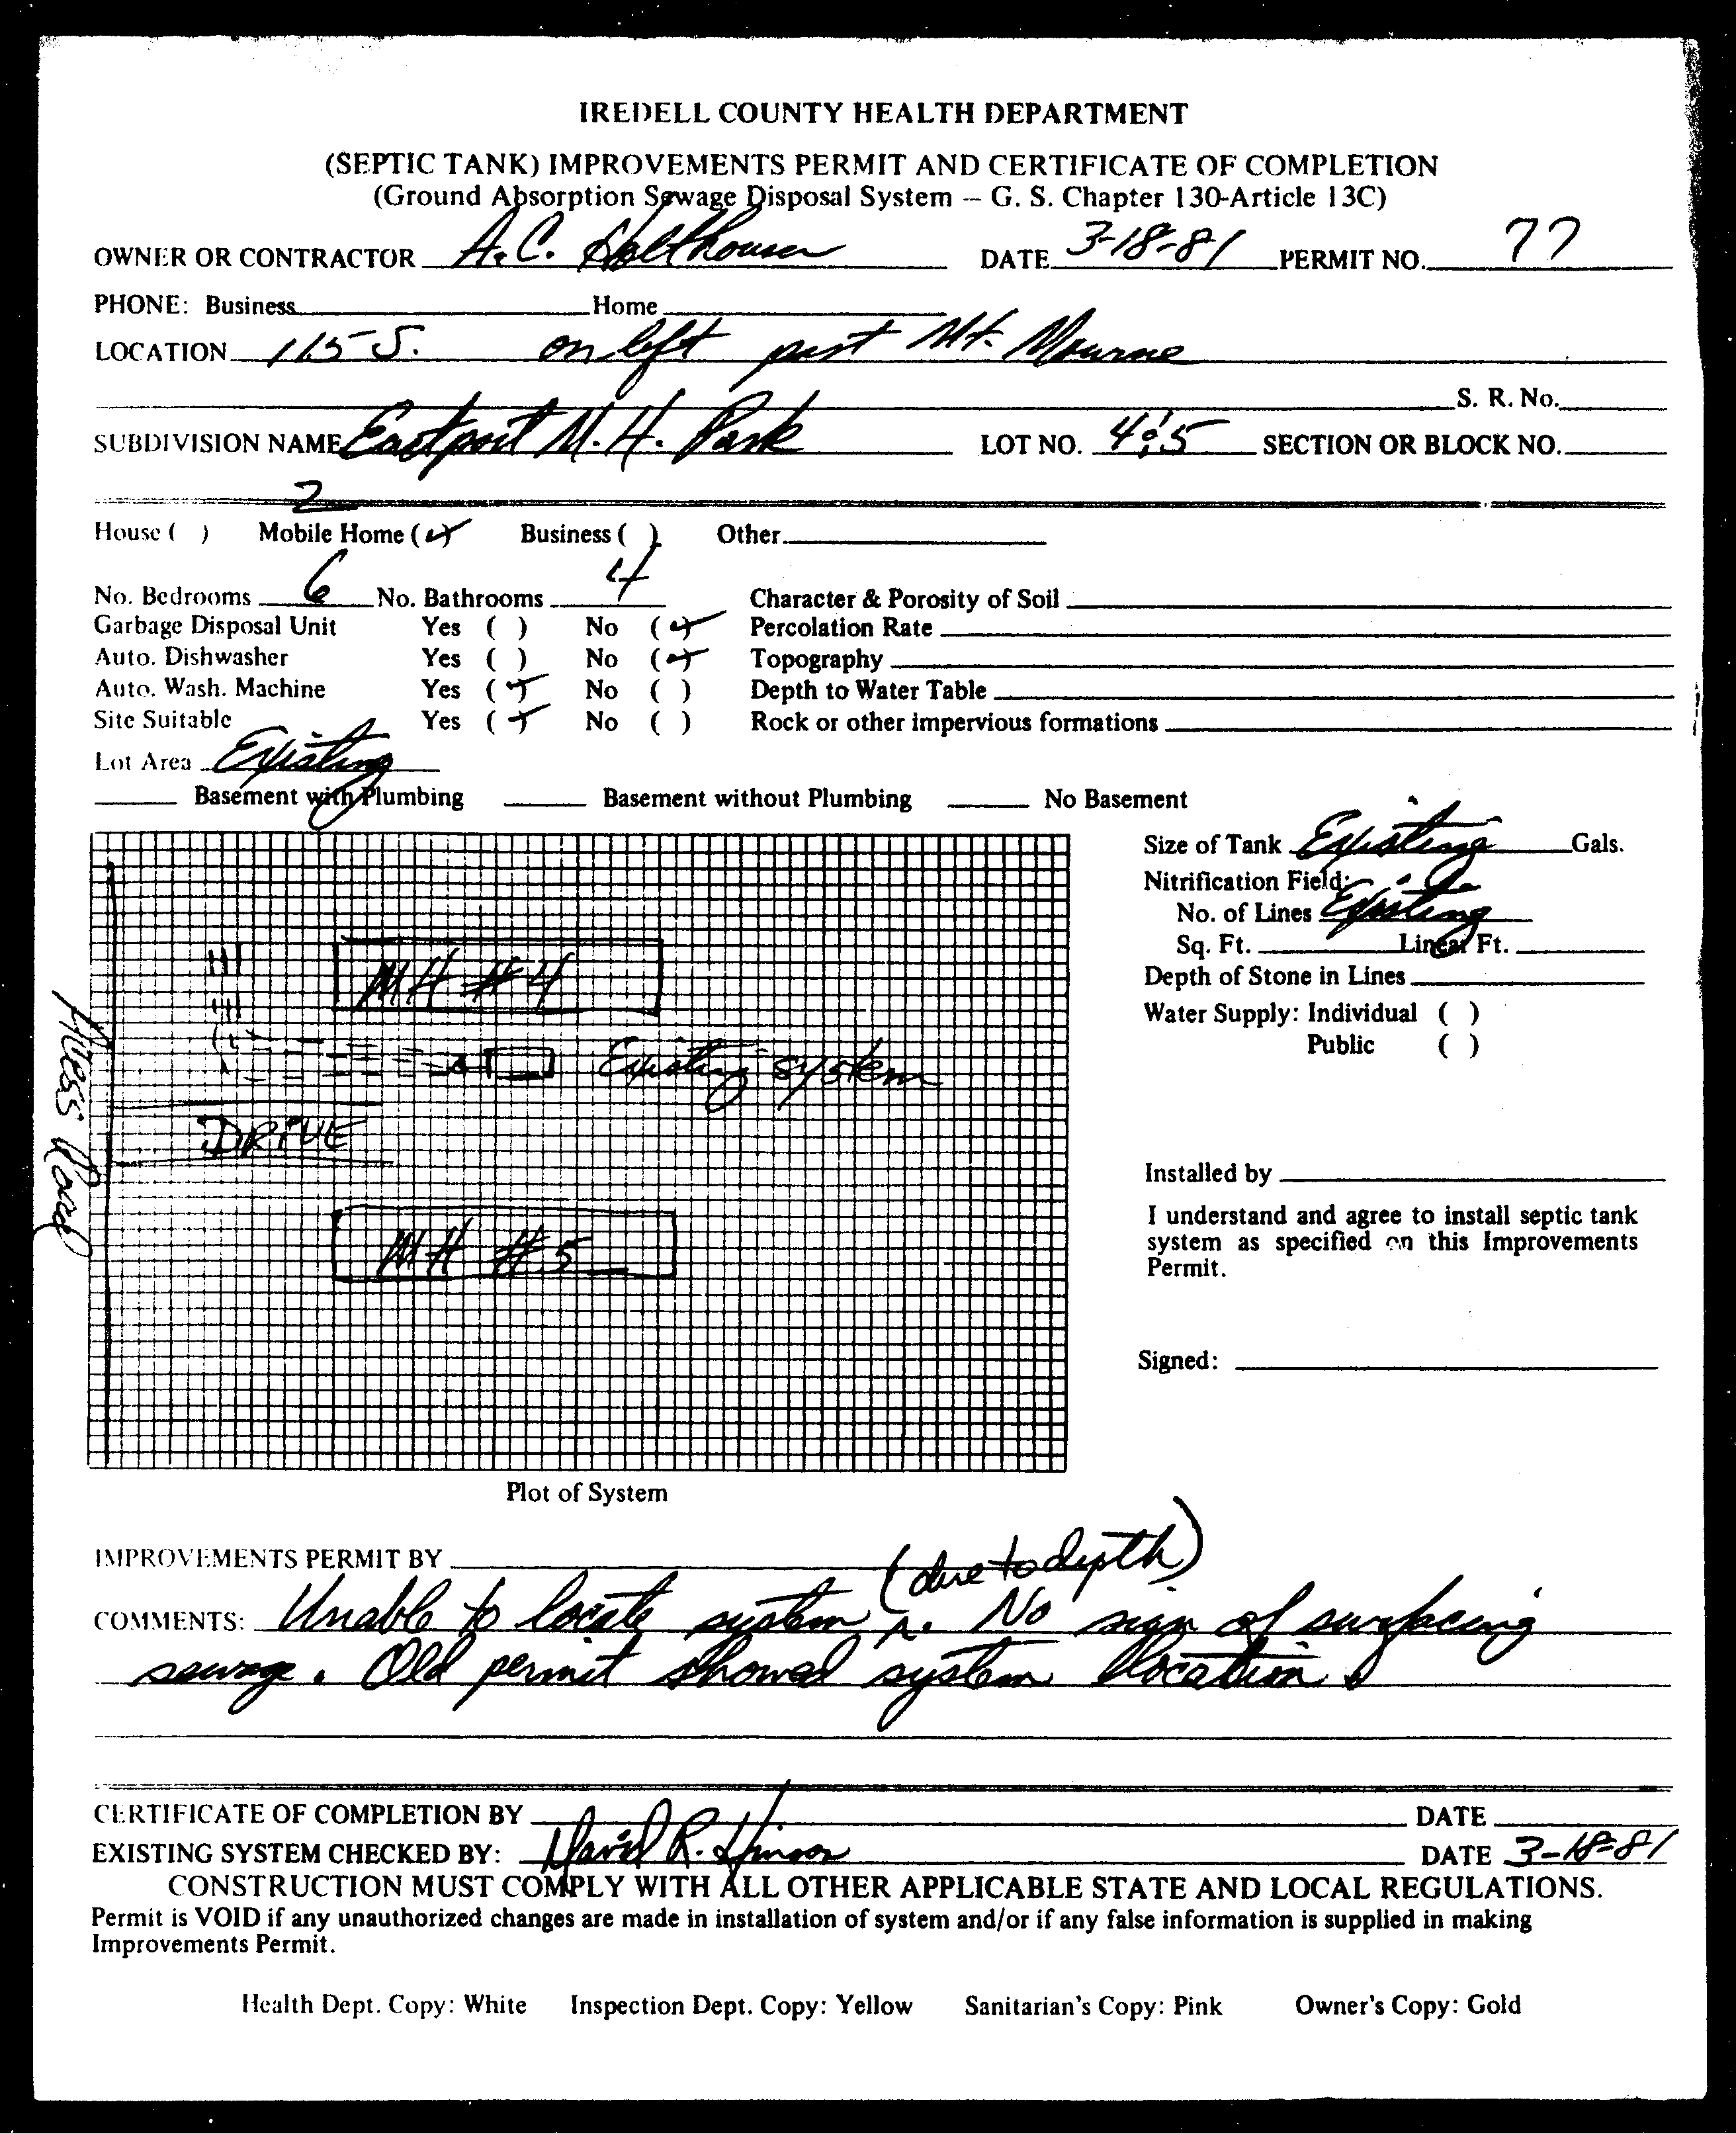 IREDELL COUNTY HEALTH DEPARTMENT
(SEPTIC TANK) IMPROVEMENTS PERMIT AND CERTIFICATE OF COMPLETION
(Ground Absorption Sewage Disposal System -- G. S. Chapter 130-Article 13C)
OWNER OR CONTRACTOR A.C. Holthouser DATE 3-18-81 PERMIT NO. 77
PHONE: Business Home
LOCATION 115 S. on left past Mt. Mourne
S. R. No.
SUBDIVISION NAME Eastport M.H. Park LOT NO. 4 & 5 SECTION OR BLOCK NO.
2
House ( ) Mobile Home (✓) Business ( ) Other
No. Bedrooms 6 No. Bathrooms 4 Character & Porosity of Soil
Garbage Disposal Unit Yes ( ) No (✓) Percolation Rate
Auto. Dishwasher Yes ( ) No (✓) Topography
Auto. Wash. Machine Yes (✓) No ( ) Depth to Water Table
Site Suitable Yes (✓) No ( ) Rock or other impervious formations
Lot Area Existing
Basement with Plumbing Basement without Plumbing No Basement
Size of Tank Existing Gals.
Nitrification Field:
No. of Lines Existing
Sq. Ft. Linear Ft.
Depth of Stone in Lines
Water Supply: Individual ( )
Public ( )
MH #4
Existing system
DRIVE
MH #5
Access Road
Installed by
I understand and agree to install septic tank
system as specified on this Improvements
Permit.
Signed:
Plot of System
IMPROVEMENTS PERMIT BY
(due to depth)
COMMENTS: Unable to locate system ^. No sign of surfacing
sewage. Old permit showed system location.
CERTIFICATE OF COMPLETION BY DATE
EXISTING SYSTEM CHECKED BY: David R. Hinson DATE 3-18-81
CONSTRUCTION MUST COMPLY WITH ALL OTHER APPLICABLE STATE AND LOCAL REGULATIONS.
Permit is VOID if any unauthorized changes are made in installation of system and/or if any false information is supplied in making
Improvements Permit.
Health Dept. Copy: White Inspection Dept. Copy: Yellow Sanitarian's Copy: Pink Owner's Copy: Gold